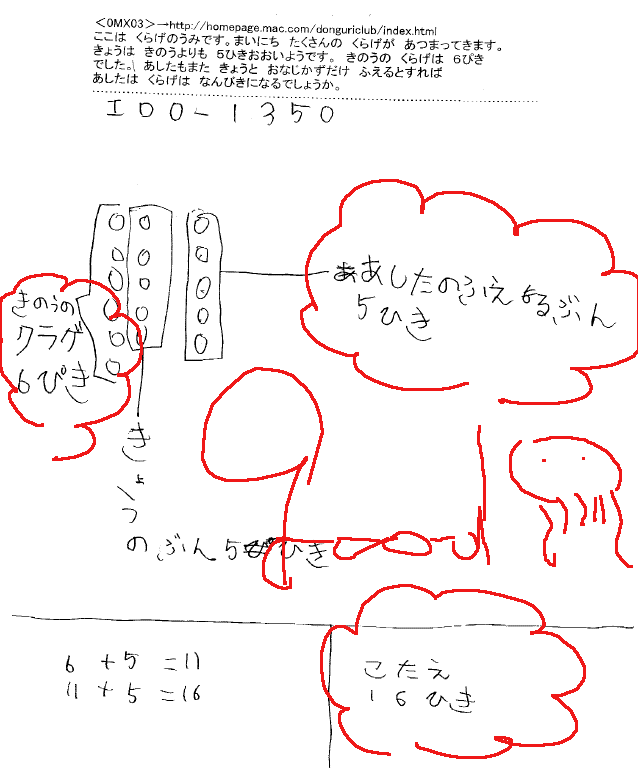 <0MX03>→http://homepage.mac.com/donguriclub/index.html
ここは くらげのうみです。まいにち たくさんの くらげが あつまってきます。
きょうは きのうよりも 5ひきおおいようです。 きのうの くらげは 6ぴき
でした。 あしたもまた きょうと おなじかずだけ ふえるとすれば
あしたは くらげは なんびきになるでしょうか。
IDO-1350
あしたのふえるぶん
5ひき
きのうの
クラゲ
6ぴき
きょう
のぶん5ひき
6+5=11
11+5=16
こたえ
16ひき